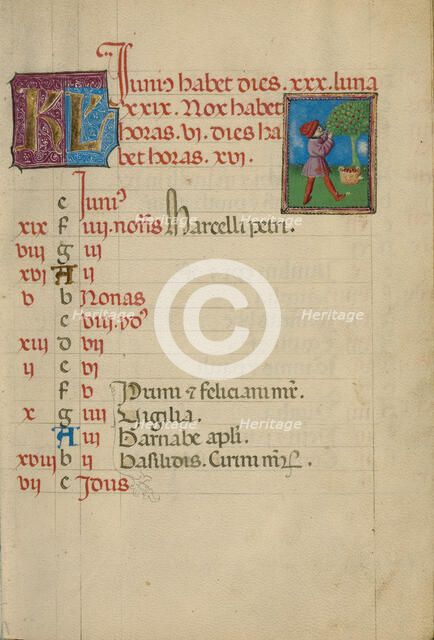 KL Iunius habet dies .xxx. luna
.xxix. Nox habet
horas .vi. dies ha
bet horas .xvi.
e Iunius
xix f iiii. nonas Marcelli petri.
viii g iii
xvi A ii
v b Nonas
c viii. ydus
xiii d vii
ii e vi
f v Primi et feliciani mr.
x g iiii Vigilia.
A iii Barnabe apli.
xviii b ii Basilidis. Cirini mr.
vii c Idus
Heritage Heritage
Heritage
Heritage Heritage